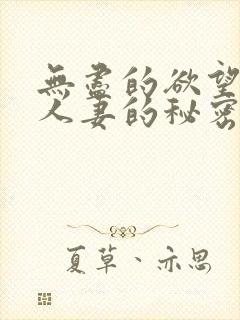 無盡的欲望
人妻的秘密
夏草、亦思